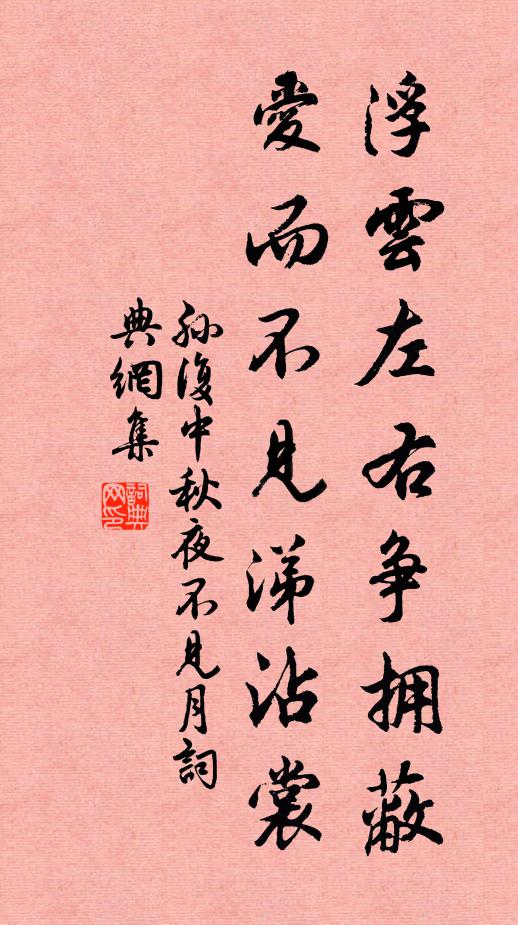 浮雲左右争拥蔽
愛而不見涕沾裳
孙復中秋夜不見月詞
典網集
詞典
网印